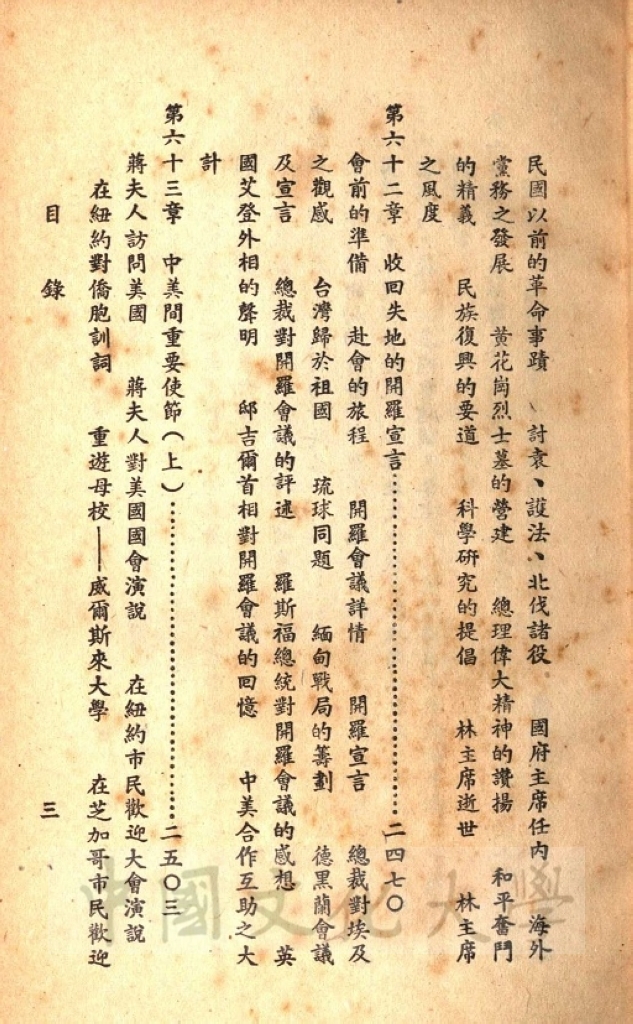 民國以前的革命事蹟　討袁、護法、北伐諸役　國府主席任內　海外
黨務之發展　黃花崗烈士墓的營建　總理偉大精神的讚揚　和平奮鬥
的精義　民族復興的要道　科學研究的提倡　林主席逝世　林主席
之風度
第六十二章　收回失地的開羅宣言……………………………二四七〇
會前的準備　赴會的旅程　開羅會議詳情　開羅宣言　總裁對埃及
之觀感　台灣歸於祖國　琉球同題　緬甸戰局的籌劃　德黑蘭會議
及宣言　總裁對開羅會議的評述　羅斯福總統對開羅會議的感想　英
國艾登外相的聲明　邱吉爾首相對開羅會議的回憶　中美合作互助之大
計
第六十三章　中美間重要使節(上)……………………………二五〇三
蔣夫人訪問美國　蔣夫人對美國國會演說　在紐約市民歡迎大會演說
在紐約對僑胞訓詞　重遊母校——威爾斯來大學　在芝加哥市民歡迎
目錄　三
中國文化大學